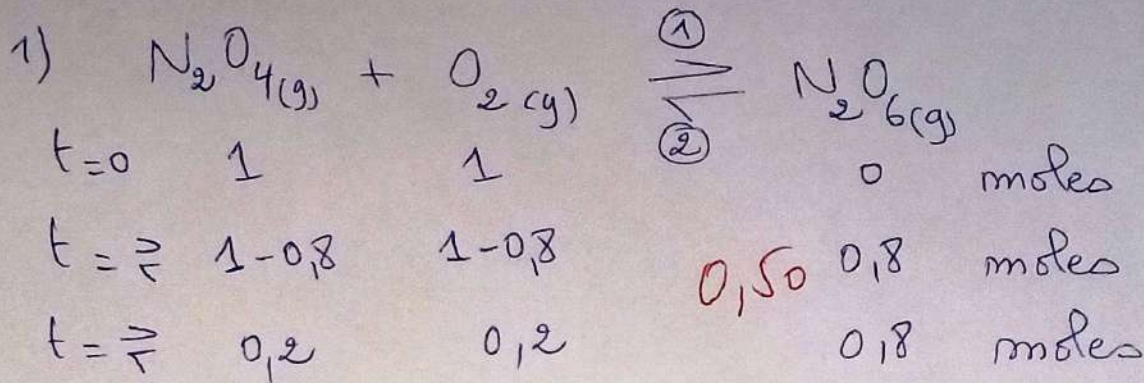 1) N₂O₄(g) + O₂(g) ①⇌② N₂O₆(g)
t=0 1 1 0 moles
t=⇌ 1-0,8 1-0,8 0,50 0,8 moles
t=⇌ 0,2 0,2 0,8 moles